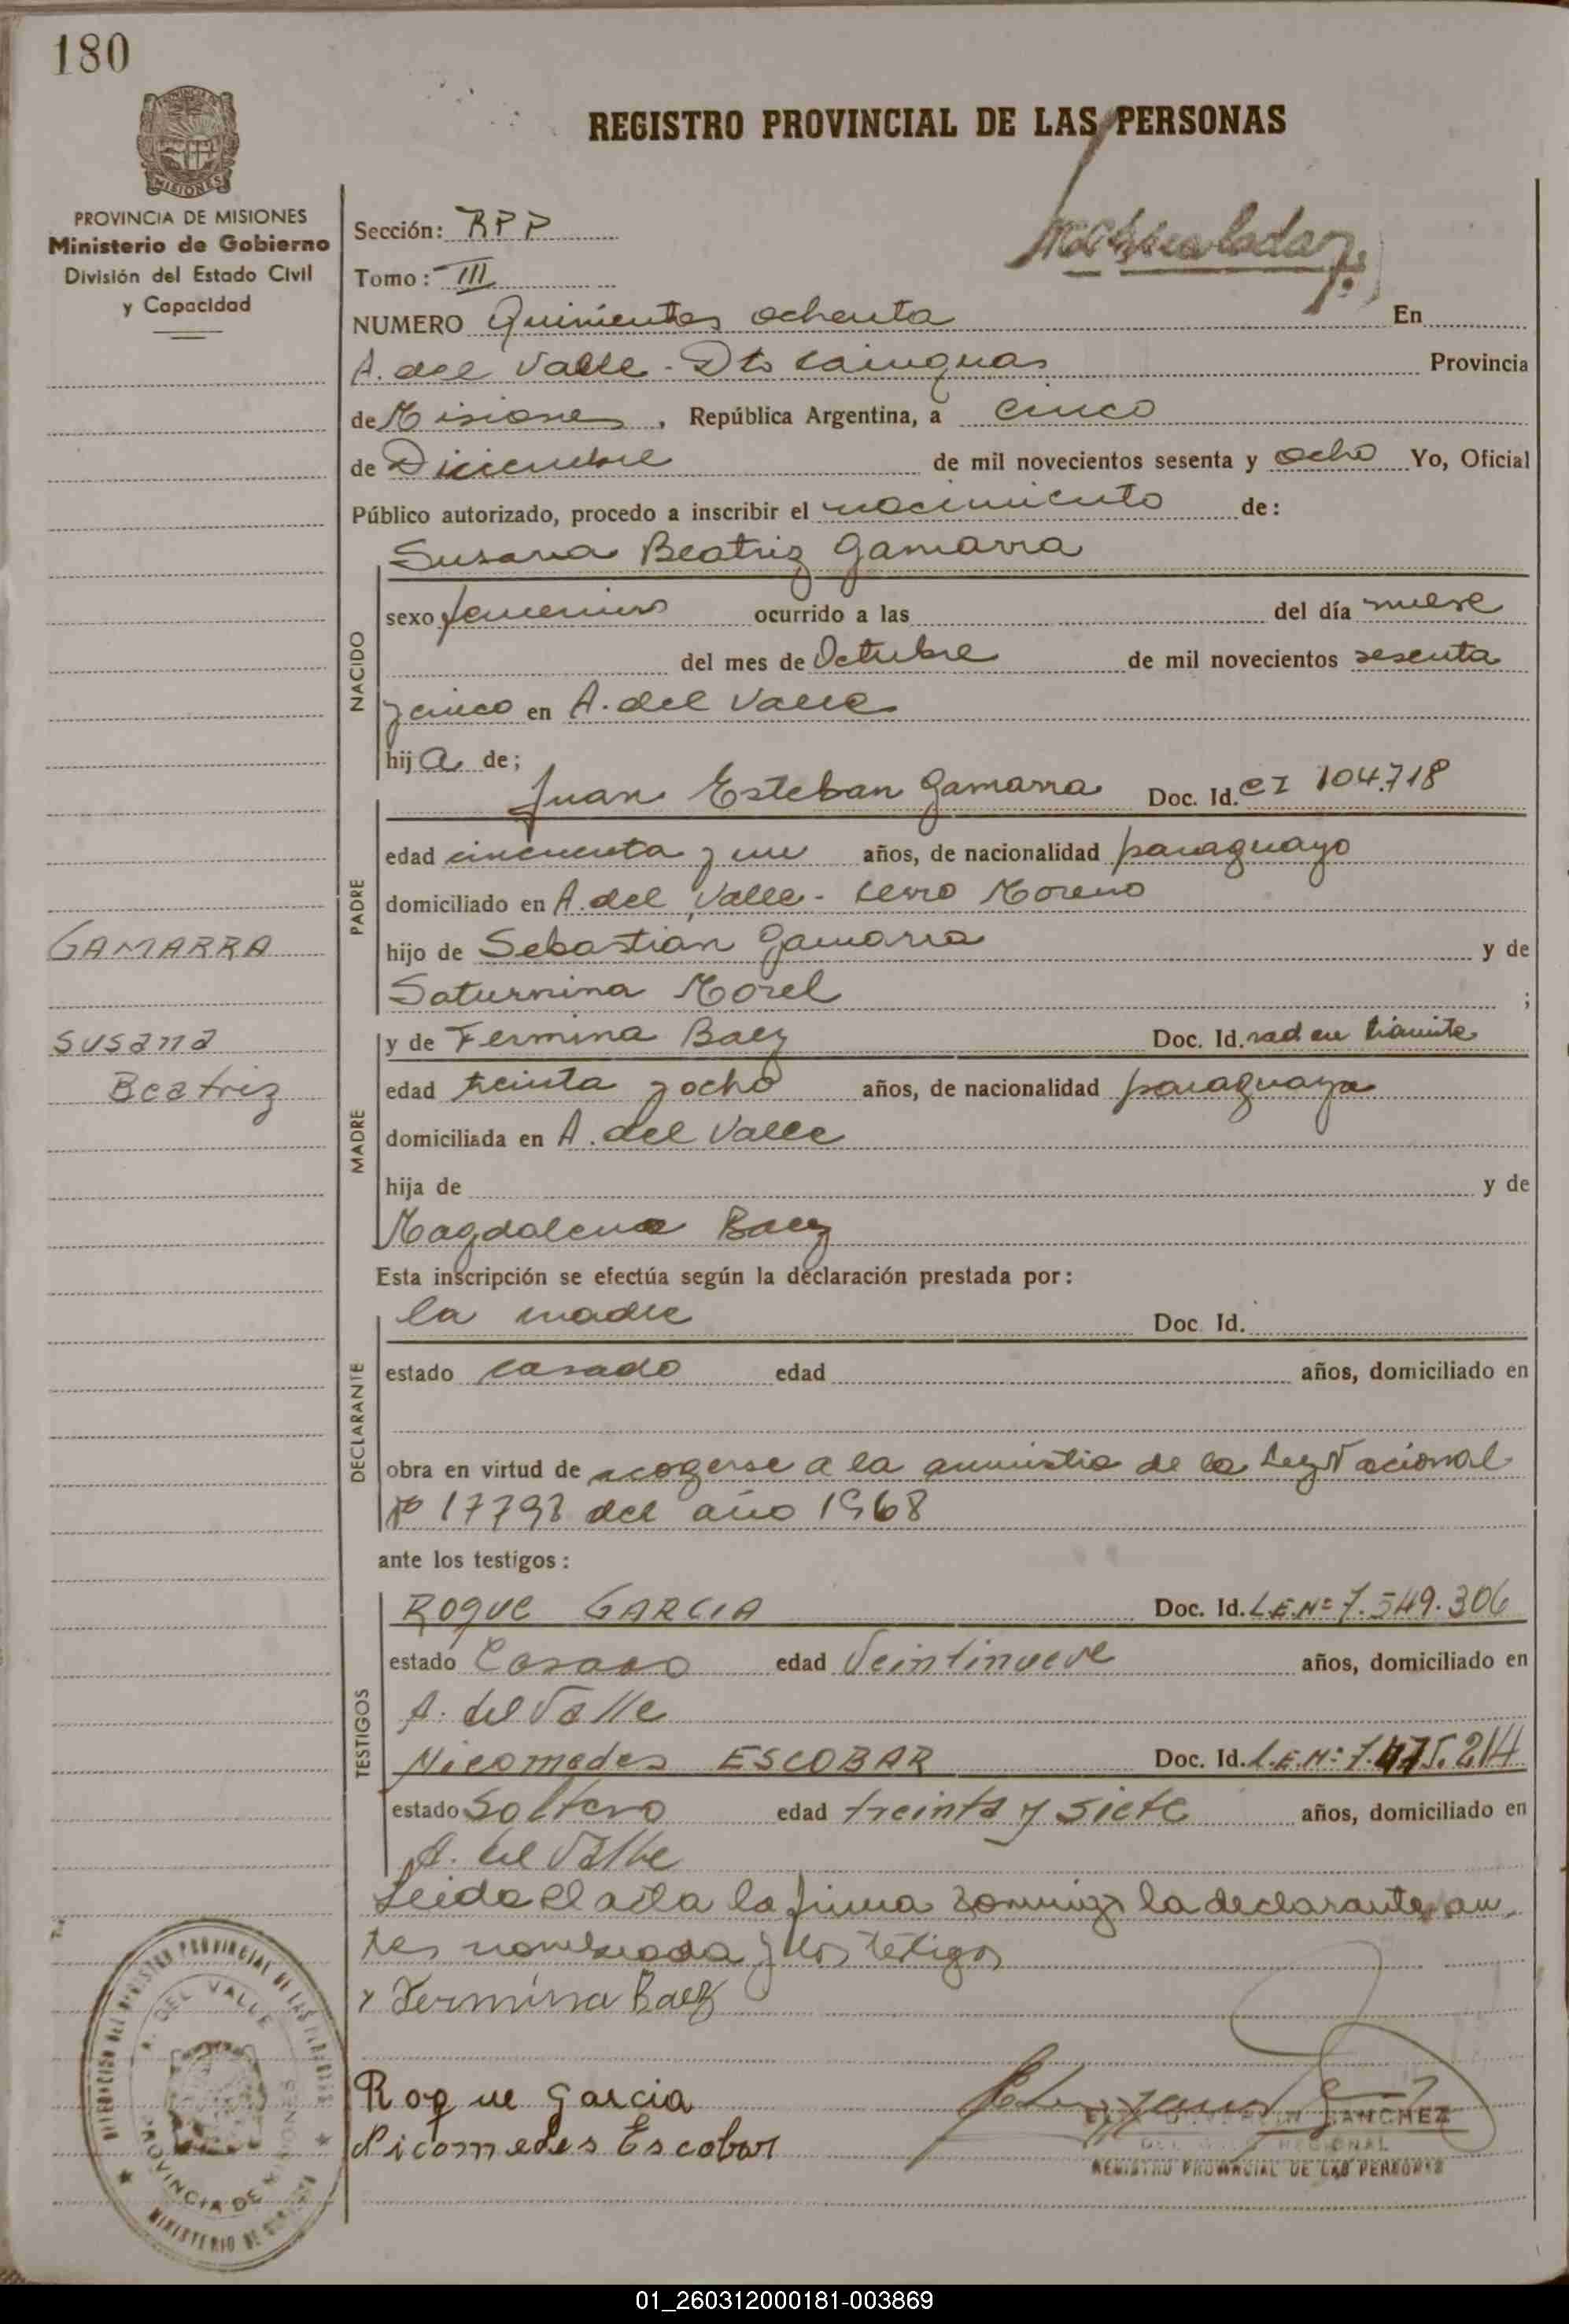 180
PROVINCIA DE MISIONES
Ministerio de Gobierno
División del Estado Civil
y Capacidad
REGISTRO PROVINCIAL DE LAS PERSONAS
Sección: RPP
Tomo: III
NUMERO Quinientos ochenta En
A. del Valle - Dto Cainguas Provincia
de Misiones, República Argentina, a cinco
de Diciembre de mil novecientos sesenta y ocho Yo, Oficial
Público autorizado, procedo a inscribir el nacimiento de:
Susana Beatriz Gamarra
NACIDO
sexo femenino ocurrido a las del día nueve
del mes de Octubre de mil novecientos sesenta
y cinco en A. del Valle
hija de;
PADRE
Juan Esteban Gamarra Doc. Id. CI 104.718
edad cincuenta y un años, de nacionalidad paraguayo
domiciliado en A. del Valle - Cerro Moreno
hijo de Sebastián Gamarra y de
Saturnina Morel ;
GAMARRA
Susana
Beatriz
MADRE
y de Fermina Baez Doc. Id. rad en trámite
edad treinta y ocho años, de nacionalidad paraguaya
domiciliada en A. del Valle
hija de y de
Magdalena Baez
Esta inscripción se efectúa según la declaración prestada por:
DECLARANTE
la madre Doc. Id.
estado casado edad años, domiciliado en
obra en virtud de acogerse a la amnistia de la Ley Nacional
Nº 17793 del año 1968
ante los testigos:
TESTIGOS
Roque GARCIA Doc. Id. L.E.Nº 7.549.306
estado Casado edad Veintinueve años, domiciliado en
A. del Valle
Nicomedes ESCOBAR Doc. Id. L.E.Nº 7.475.214
estado Soltero edad treinta y siete años, domiciliado en
A. del Valle
Leida el acta la firma conmigo la declarante an
tes nombrada y los testigos
x Fermina Baez
Roque Garcia
Nicomedes Escobar
SANCHEZ
REGIONAL
REGISTRO PROVINCIAL DE LAS PERSONAS
A. DEL VALLE
PROVINCIA DE
01_260312000181-003869